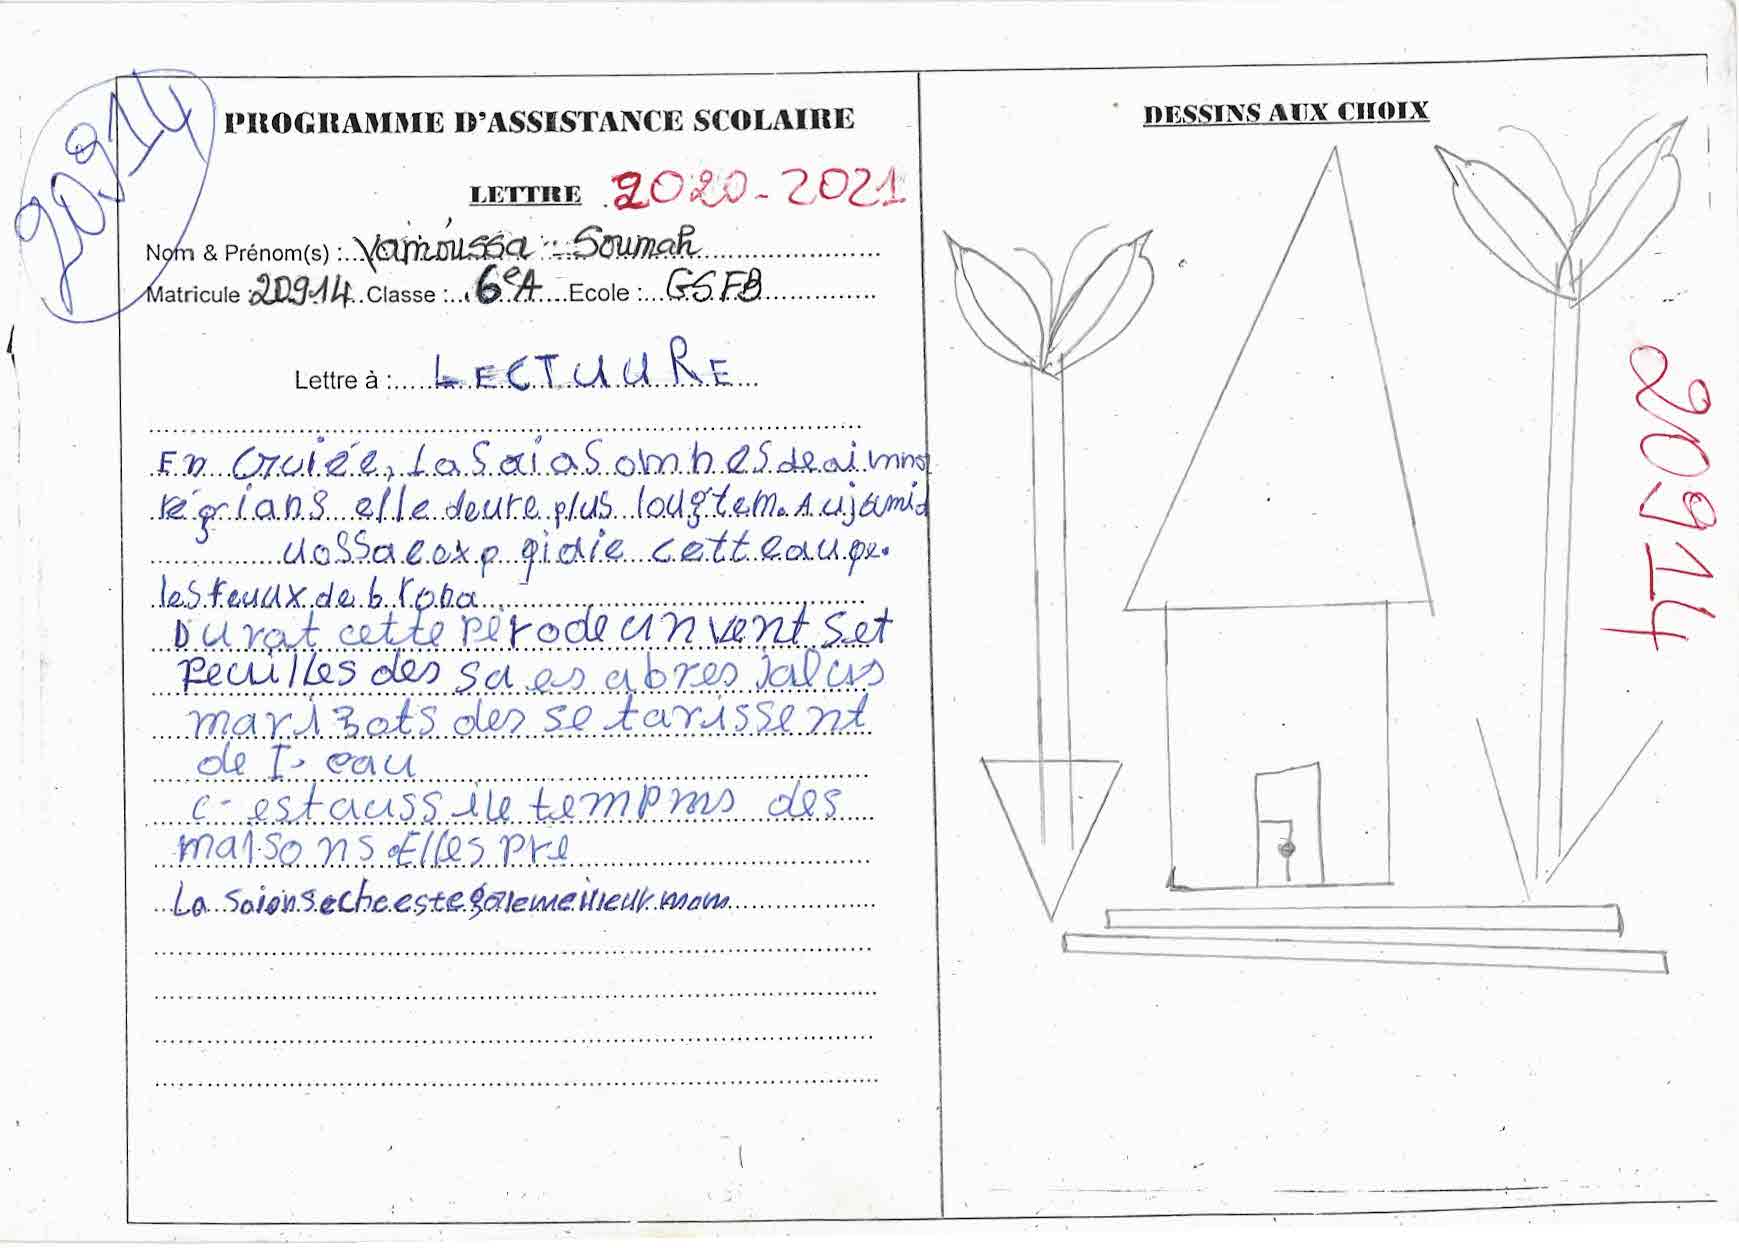 20914
PROGRAMME D'ASSISTANCE SCOLAIRE
LETTRE 2020-2021
Nom & Prénom(s) : Vamoussa Soumah
Matricule : 20914 Classe : 6eA Ecole : GSFB
Lettre à : LECTUURE
En Gruiée, La Saias ombes de ai
régrians elle deure plus lougtem. Aujami
uossa coxp gidie cette aupe.
les feuux de b rona
Durat cette pérode un vent set
Feuilles des sa es abres ialus
marizots des se tarissent
de I. eau
c- est auss ile tempms des
maisons. Elles pre
La Saionseche est
DESSINS AUX CHOIX
20914